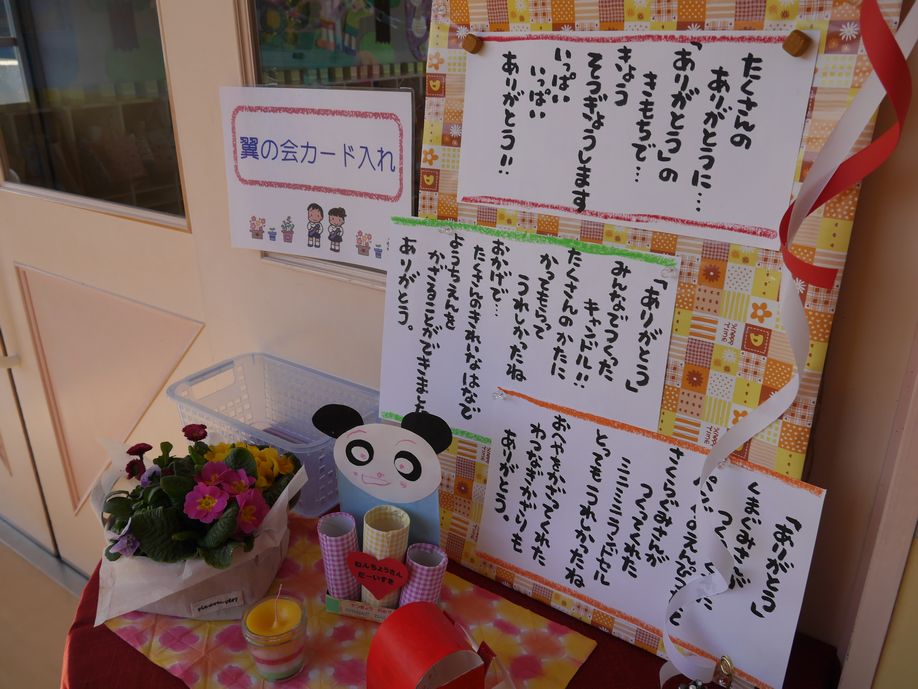 翼の会カード入れ
たくさんの
ありがとうに…
「ありがとう」の
きもちで…
きょう
そつぎょうします
いっぱい
いっぱい
ありがとう!!
「ありがとう」
みんなでつくった
キャンドル!!
たくさんのかたに
かってもらって
うれしかったね
おかげで…
たくさんのきれいなはなで
ようちえんを
かざることができまし
ありがとう。
「ありがとう」
くまぐみさんが
さくらぐみさんが
つくってくれた
ミニミニランドセル
とってもうれしかったね
おへやをかざってくれた
わっかなぎかざりも
ありがとう。
えんちょうさん
だーいすき